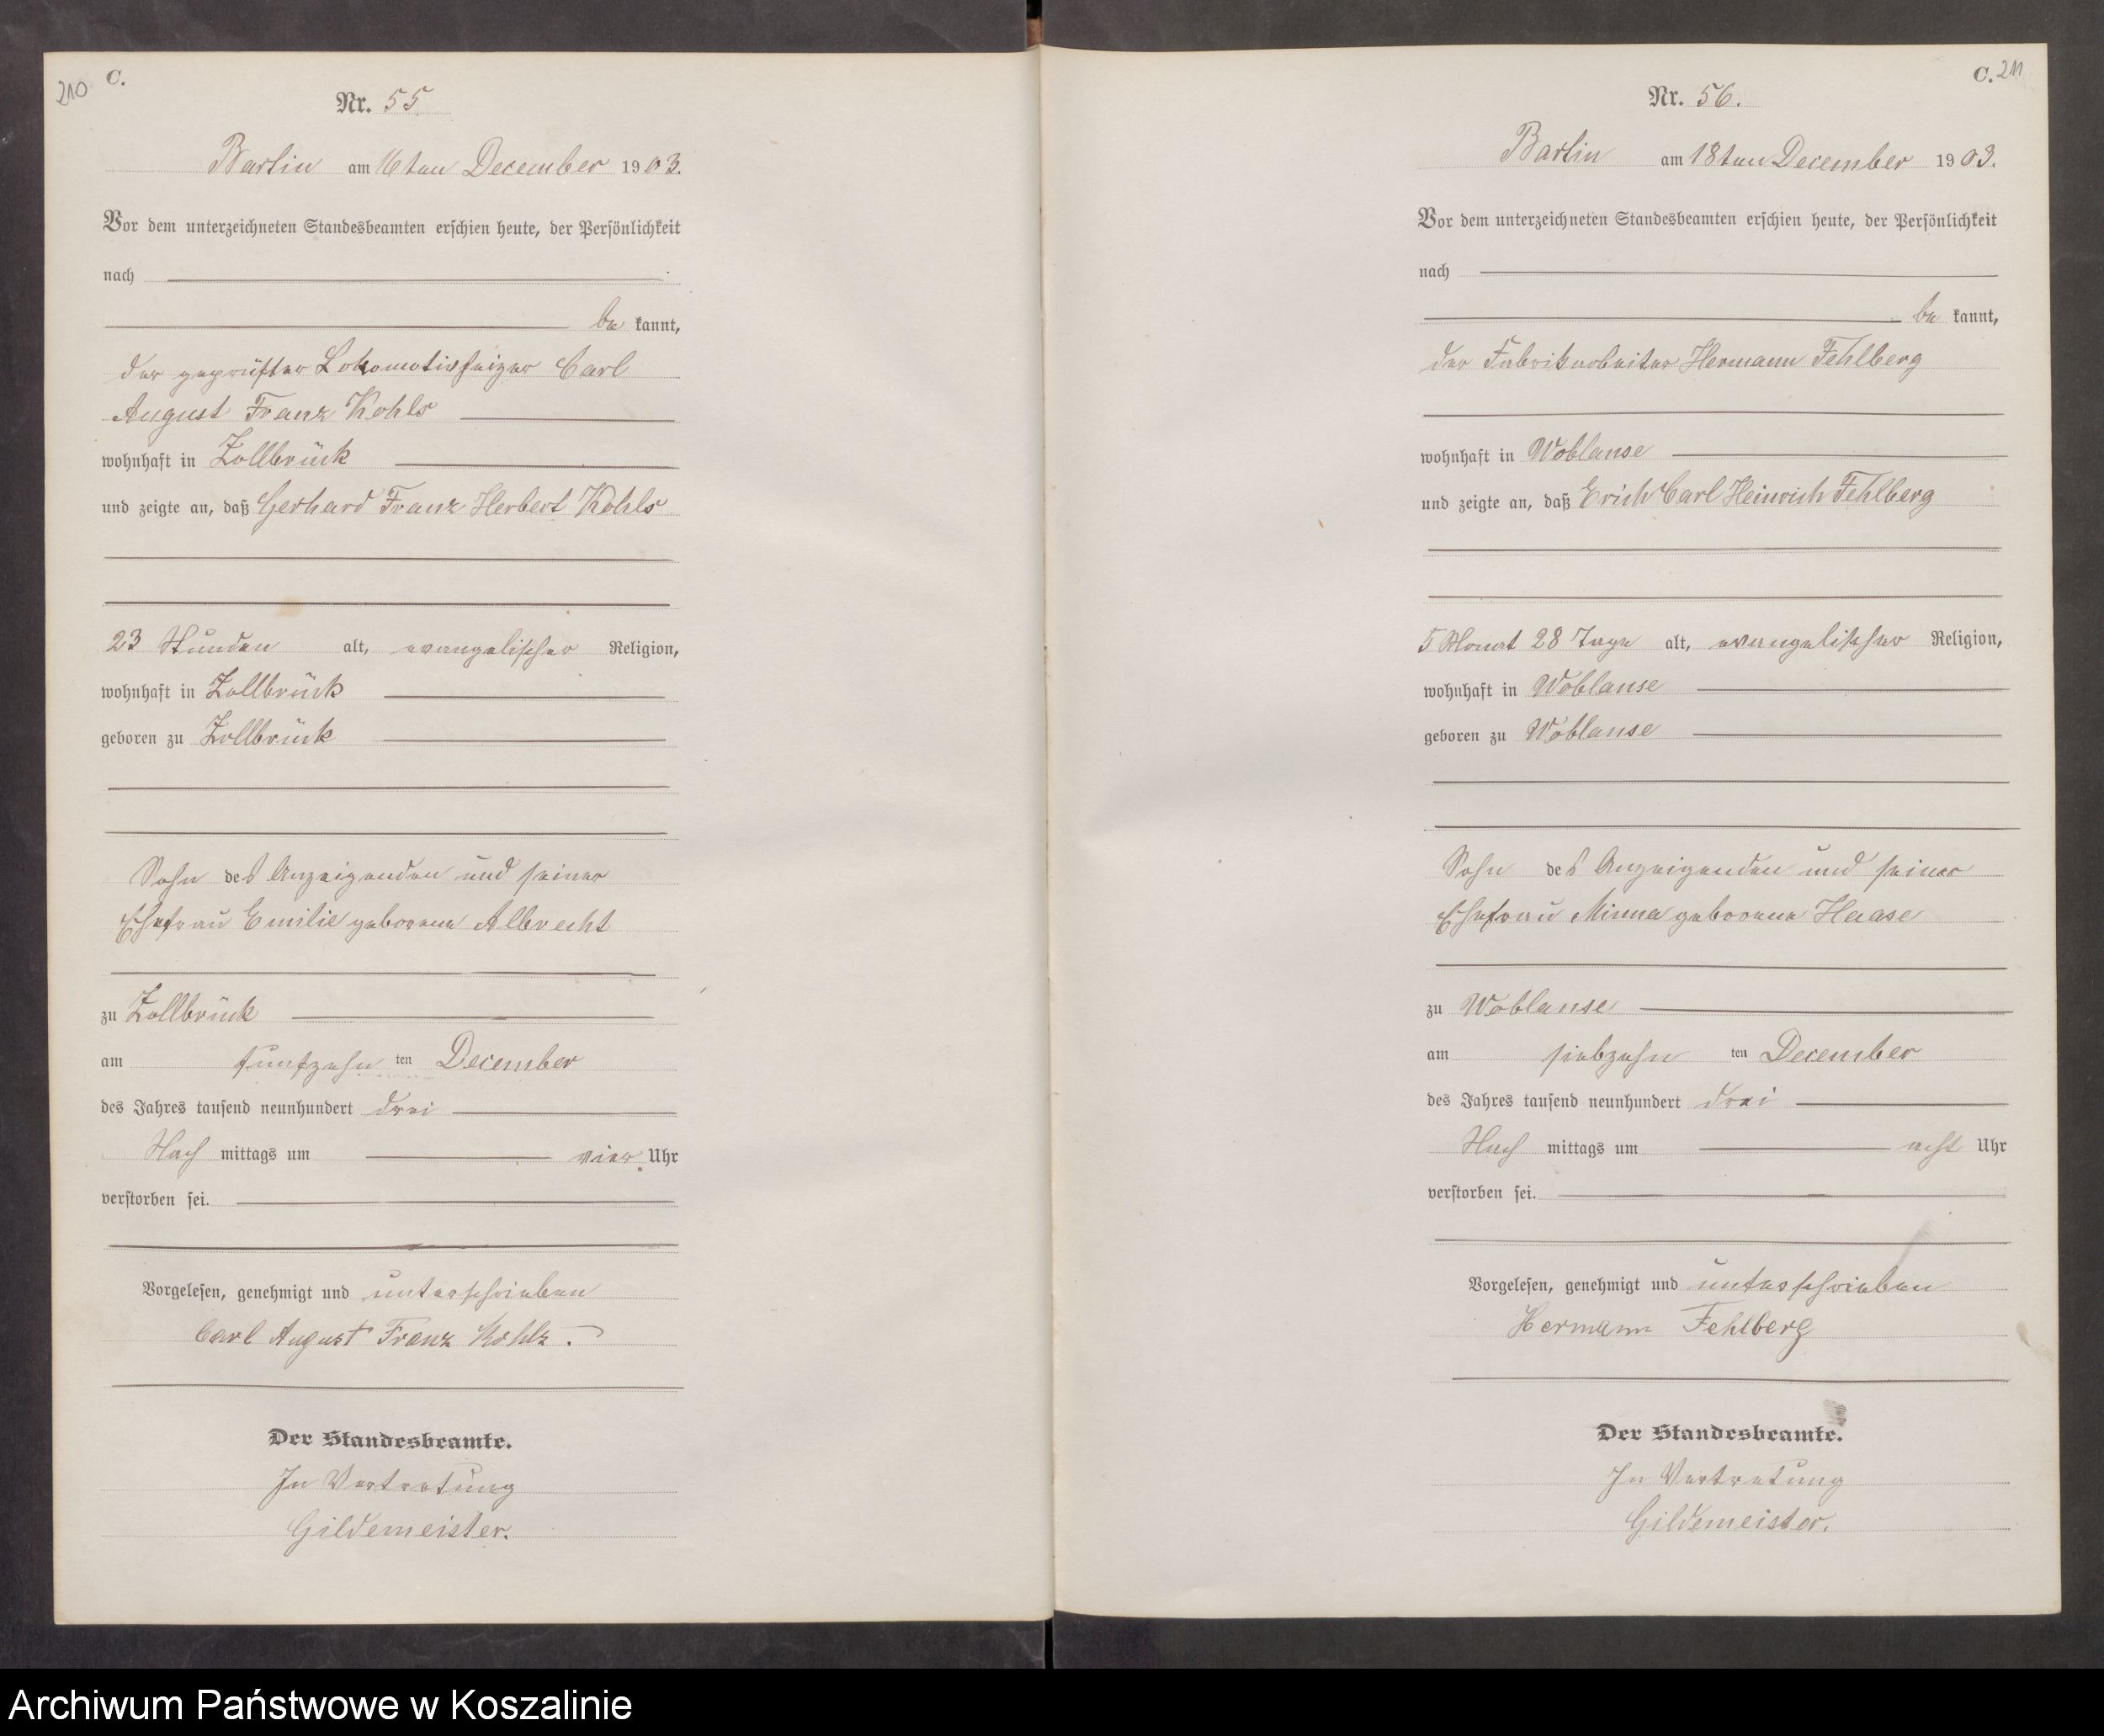 210 C.
Nr. 55.
Bartin am 16ten December 1903.
Vor dem unterzeichneten Standesbeamten erschien heute, der Persönlichkeit
nach
be kannt,
der geprüfter Lokomotivheizer Carl
August Franz Kohls
wohnhaft in Zollbrück
und zeigte an, daß Gerhard Franz Herbert Kohls
23 Stunden alt, evangelischer Religion,
wohnhaft in Zollbrück
geboren zu Zollbrück
Sohn des Anzeigenden und seiner
Ehefrau Emilie geborene Albrecht
zu Zollbrück
am fünfzehn ten December
des Jahres tausend neunhundert drei
Nach mittags um vier Uhr
verstorben sei.
Vorgelesen, genehmigt und unterschrieben
Carl August Franz Kohls.
Der Standesbeamte.
In Vertretung
Gildemeister.
C. 211
Nr. 56.
Bartin am 18ten December 1903.
Vor dem unterzeichneten Standesbeamten erschien heute, der Persönlichkeit
nach
be kannt,
der Fabrikarbeiter Hermann Fehlberg
wohnhaft in Woblanse
und zeigte an, daß Erich Carl Heinrich Fehlberg
5 Monat 28 Tage alt, evangelischer Religion,
wohnhaft in Woblanse
geboren zu Woblanse
Sohn des Anzeigenden und seiner
Ehefrau Minna geborene Haase
zu Woblanse
am siebzehn ten December
des Jahres tausend neunhundert drei
Nach mittags um acht Uhr
verstorben sei.
Vorgelesen, genehmigt und unterschrieben
Hermann Fehlberg
Der Standesbeamte.
In Vertretung
Gildemeister.
Archiwum Państwowe w Koszalinie